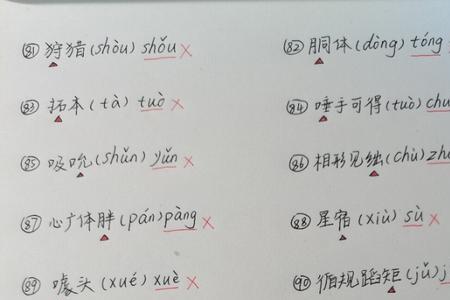 81 狩猎(shòu) shǒu ×
82 胴体(dòng) tóng
83 拓本(tà) tuò ×
84 唾手可得(tuò) chu
85 吸吮(shǔn) yǔn ×
86 相形见绌(chù) zhu
87 心广体胖(pán) pàng ×
88 星宿(xiù) sù ×
89 噱头(xué) xuè ×
90 循规蹈矩(jǔ) j